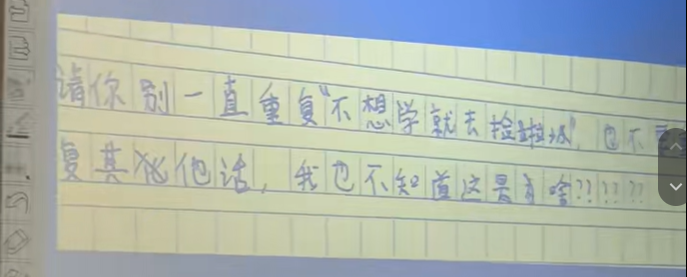 请你别一直重复“不想学就去捡垃圾”，也不
复其他话，我也不知道这是为啥??????